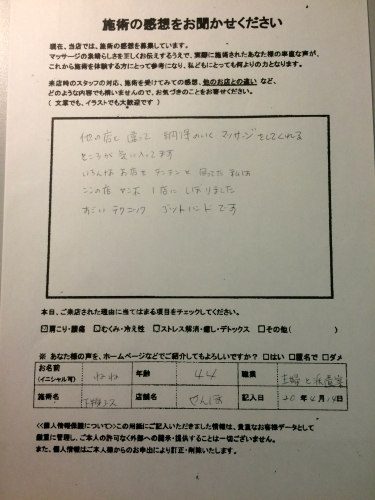 施術の感想をお聞かせください
現在、当店では、施術の感想を募集しています。
マッサージの素晴らしさを正しくお伝えするうえで、実際に施術されたあなた様の率直な声が、
これから施術を体験する方にとって参考になり、私どもにとっても何よりの力となります。
来店時のスタッフの対応、施術を受けてみての感想、他のお店との違い など、
どのような内容でも構いませんので、お気づきのことをお寄せください。
( 文章でも、イラストでも大歓迎です )
他の店と違って 納得のいく マッサージをしてくれる
ところが気に入ってます
いろんな お店を テンテンと 回ってた 私は
ここの店 1店に しぼりました
すごい テクニック ゴットハンド です
本日、ご来店された理由に当てはまる項目をチェックしてください。
☑肩こり・腰痛 □むくみ・冷え性 ☑ストレス解消・癒し・デトックス □その他( )
※ あなた様の声を、ホームページなどでご紹介してもよろしいですか? □はい □匿名で □ダメ
お名前 (イニシャル可) ねね 年齢 44 職業 主婦と
施術名 店舗名 記入日 20年4月14日
<<個人情報保護について>>この用紙にご記入いただきました情報は、貴重なお客様データとして
厳重に管理し、ご本人の許可なく外部への開示・提供することは一切ございません。
また、個人情報はご本人様からのお申出により訂正・削除いたします。